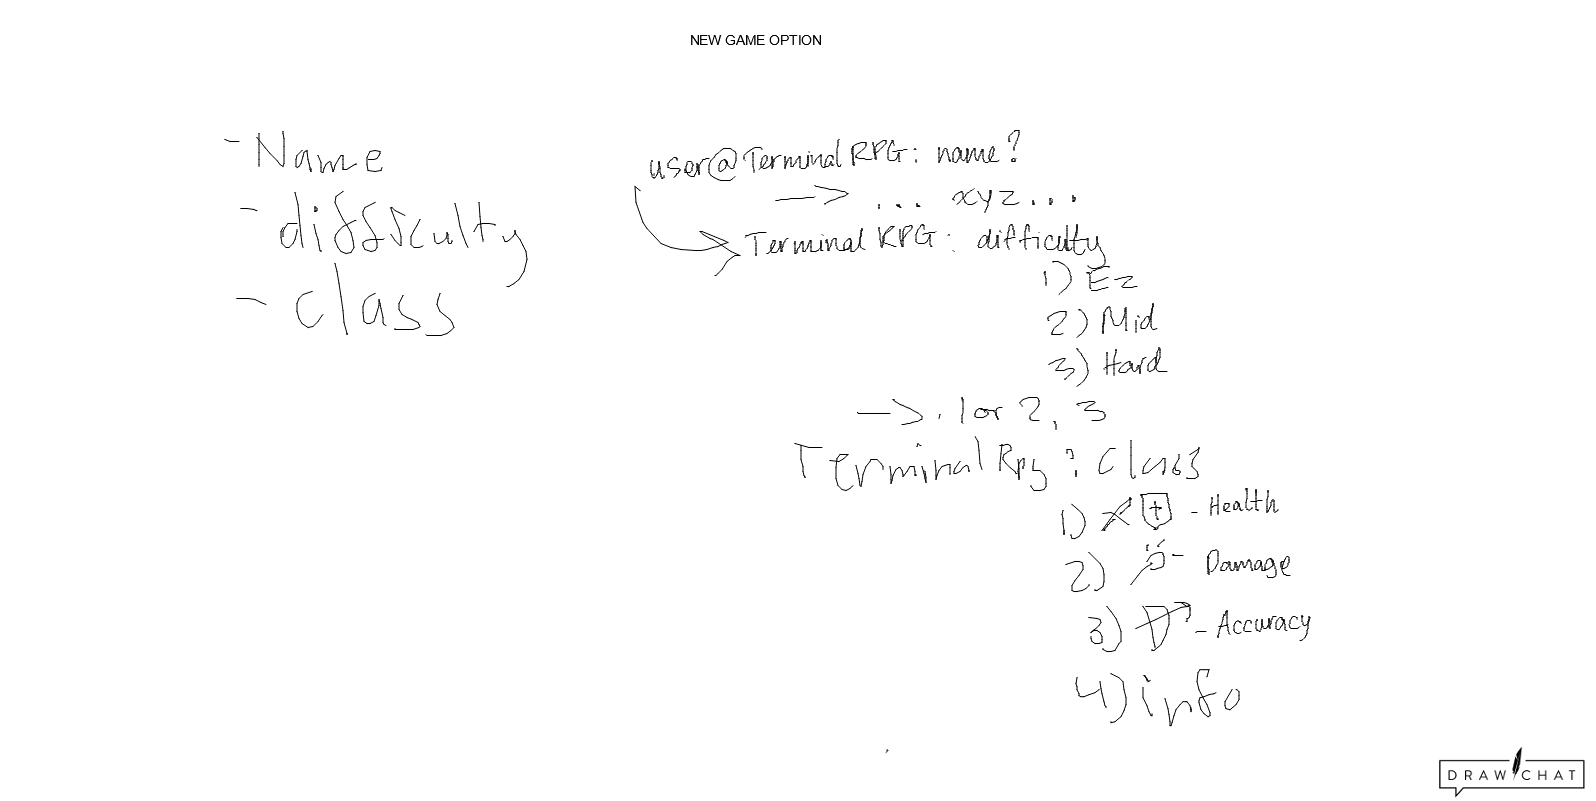 NEW GAME OPTION
- Name
- difficulty
- class
user@TerminalRPG: name?
→ ... xyz...
TerminalRPG: difficulty
1) Ez
2) Mid
3) Hard
→ . 1 or 2, 3
TerminalRpg: Class
1) - Health
2) - Damage
3) - Accuracy
4) info
DRAW CHAT